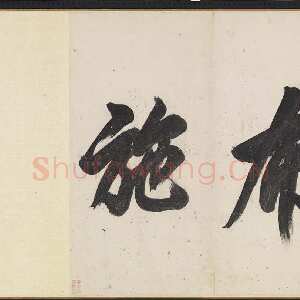 布施
Shufawang.cn